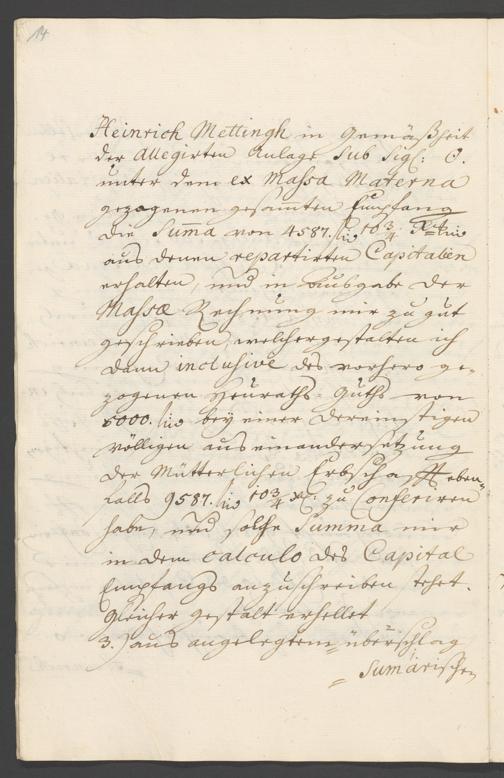 14
Heinrich Mettingh in Gemäßheit
der Allegirten Anlage Sub Sig: O.
unter dem ex Massa Materna
gezogenen gesamten Empfang
die Suma von 4587. f 10¾
aus denen repartirten Capitalien
erhalten, und in Ausgabe der
Massæ Rechnung mir zu gut
geschrieben, welchergestalten ich
dann inclusive des vorhero ge-
zogenen Heuraths-Guths von
5000. bey einer dereinstigen
völligen auseinandersetzung
der Mütterlichen Erbschafft eben-
falls 9587. 10¾ x: zu Conferiren
habe, und solche Summa mir
in dem calculo des Capital
Empfangs anzuschreiben stehet.
Gleicher gestalt erhellet
3.) aus angelegtem überschlag
Sumarischen